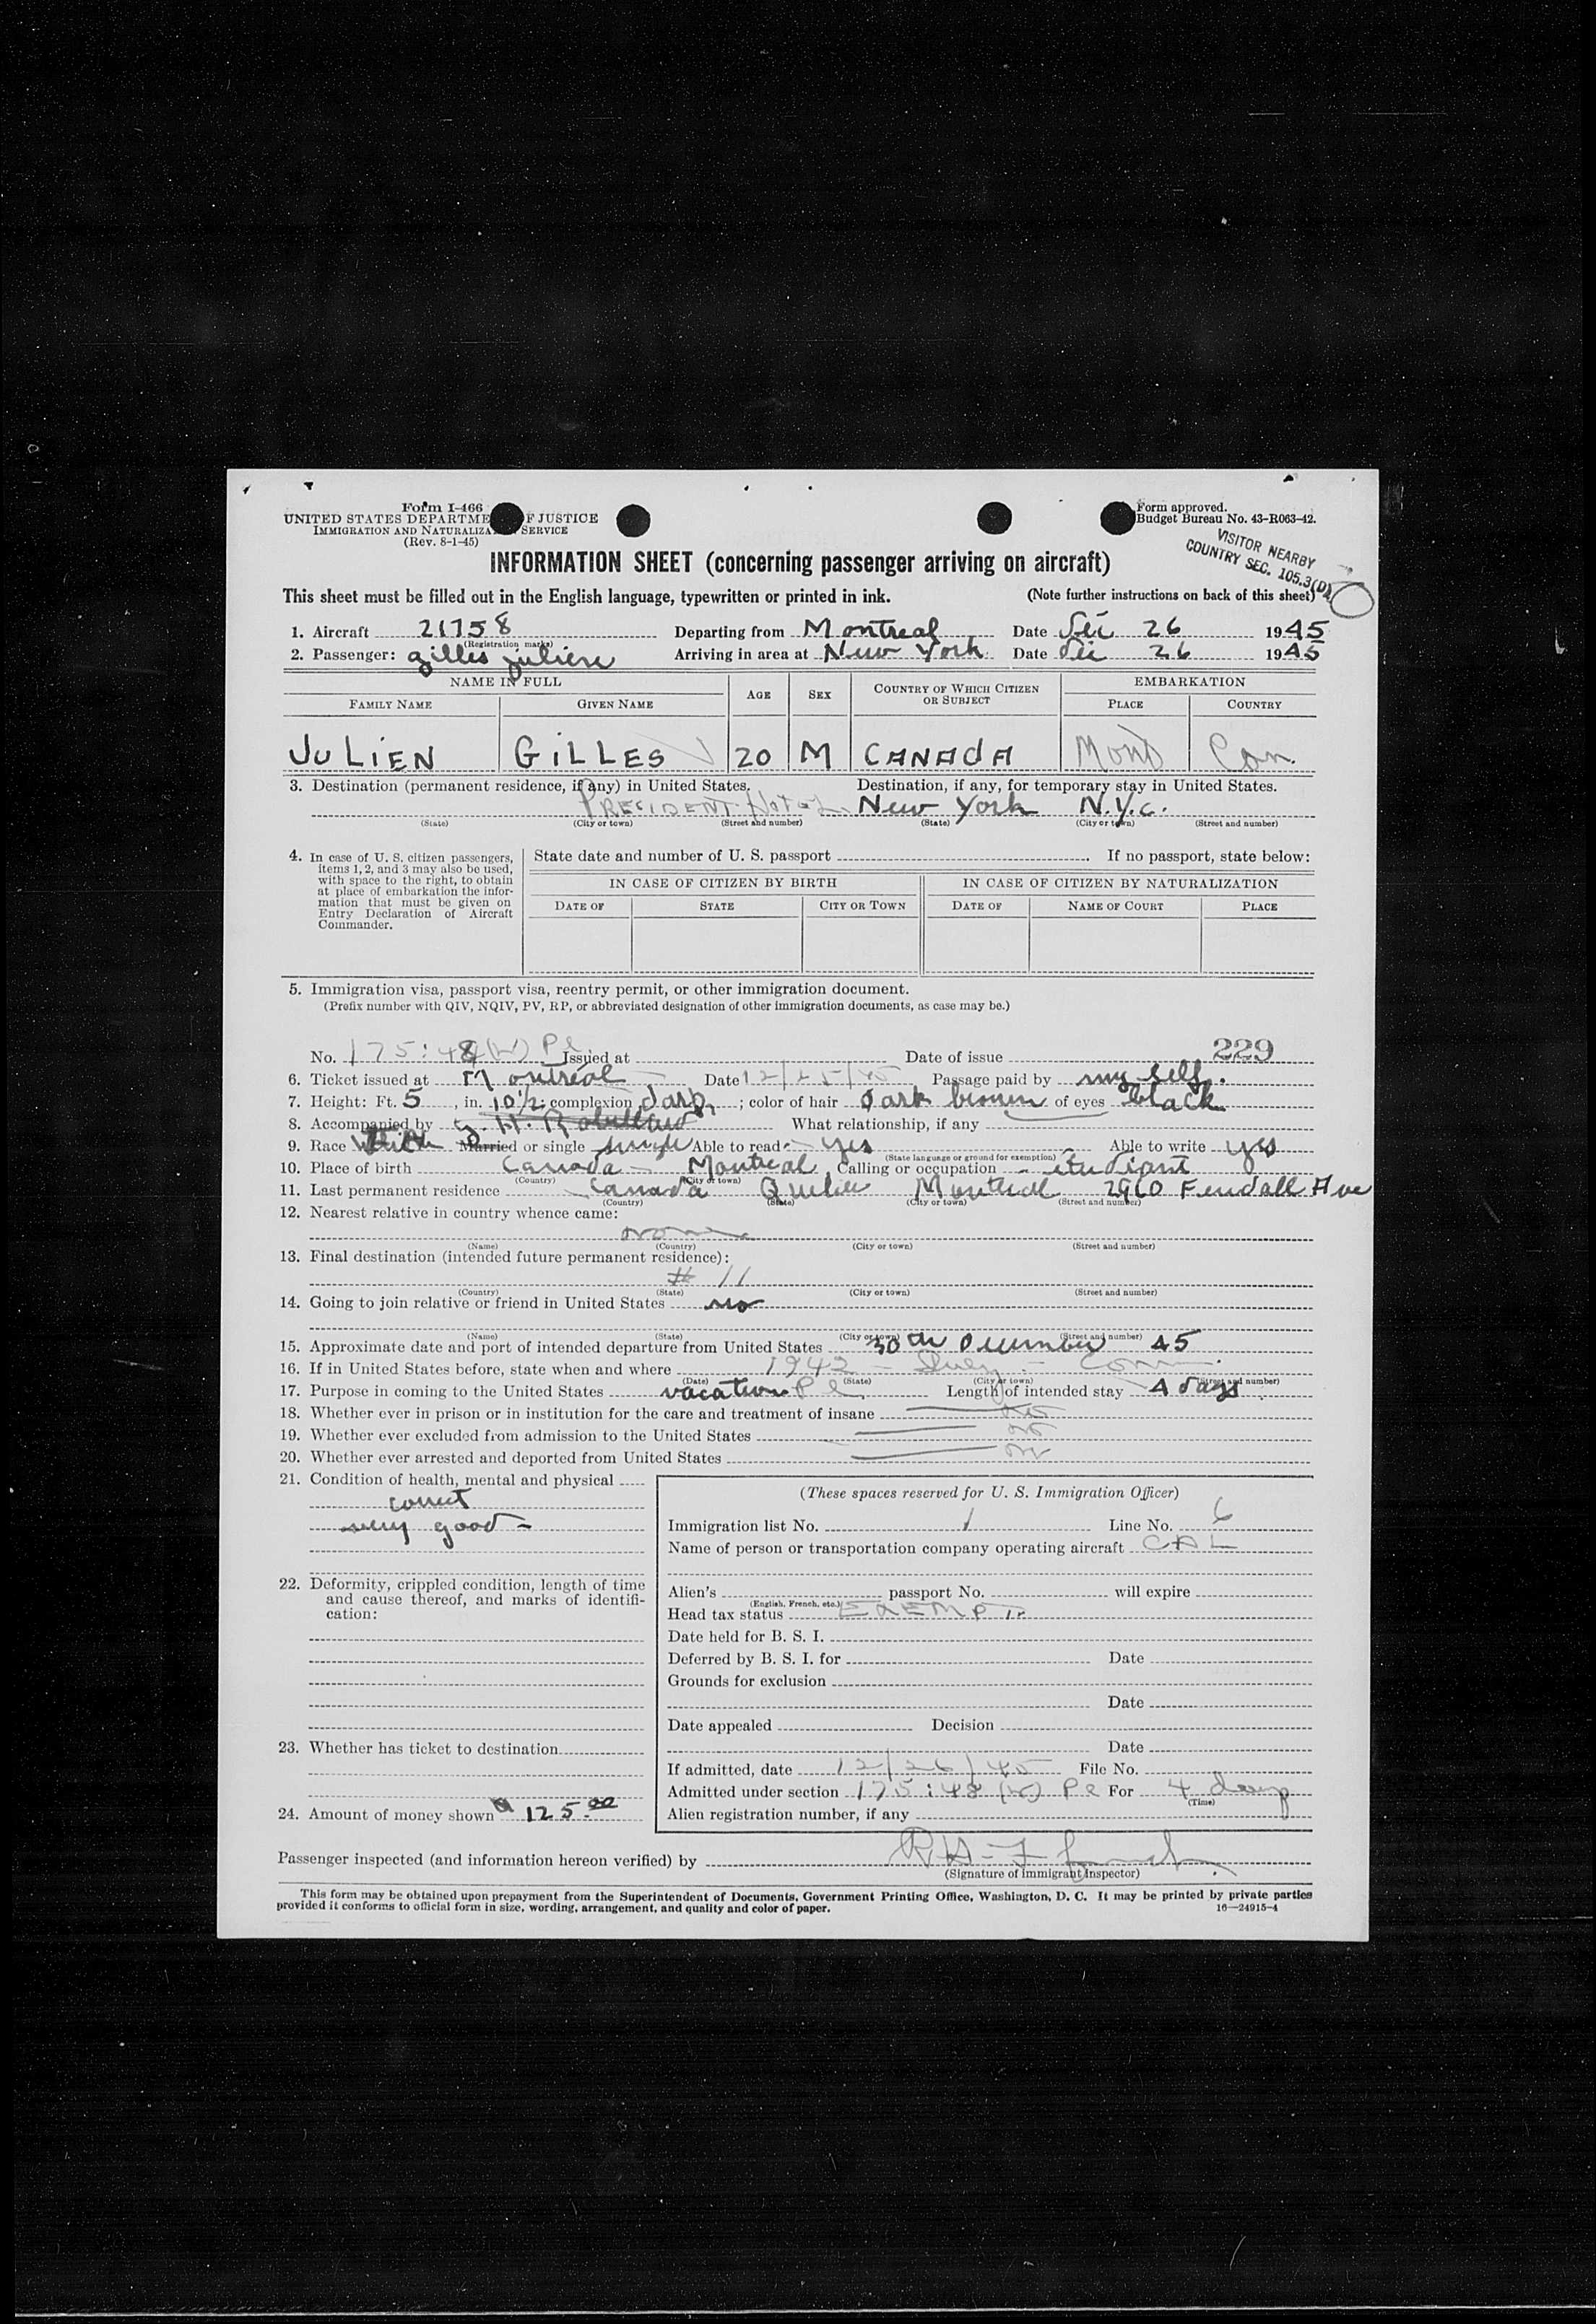 Form I-466
UNITED STATES DEPARTME F JUSTICE
IMMIGRATION AND NATURALIZA SERVICE
(Rev. 8-1-45)
Form approved.
Budget Bureau No. 43-R063-42.
VISITOR NEARBY
COUNTRY SEC. 105.3(D)
INFORMATION SHEET (concerning passenger arriving on aircraft)
This sheet must be filled out in the English language, typewritten or printed in ink. (Note further instructions on back of this sheet)
1. Aircraft 21758 Departing from Montreal Date Déc 26 1945
(Registration marks)
2. Passenger: gilles julien Arriving in area at New York Date Déc 26 1945
NAME IN FULL AGE SEX COUNTRY OF WHICH CITIZEN OR SUBJECT EMBARKATION
FAMILY NAME GIVEN NAME PLACE COUNTRY
JULIEN GILLES 20 M CANADA Mont Can.
3. Destination (permanent residence, if any) in United States. Destination, if any, for temporary stay in United States.
PRESIDENT Hotel New York N.Y.C.
(State) (City or town) (Street and number) (State) (City or town) (Street and number)
4. In case of U. S. citizen passengers, items 1, 2, and 3 may also be used, with space to the right, to obtain at place of embarkation the information that must be given on Entry Declaration of Aircraft Commander.
State date and number of U. S. passport If no passport, state below:
IN CASE OF CITIZEN BY BIRTH IN CASE OF CITIZEN BY NATURALIZATION
DATE OF STATE CITY OR TOWN DATE OF NAME OF COURT PLACE
5. Immigration visa, passport visa, reentry permit, or other immigration document.
(Prefix number with QIV, NQIV, PV, RP, or abbreviated designation of other immigration documents, as case may be.)
No. 175:48 Pl Issued at Date of issue 229
6. Ticket issued at Montréal Date 12/25/45 Passage paid by my self.
7. Height: Ft. 5, in. 10 1/2; complexion dark; color of hair dark brown of eyes black
8. Accompanied by What relationship, if any
9. Race White Married or single single Able to read yes Able to write yes
(State language or ground for exemption)
10. Place of birth Canada - Montreal Calling or occupation - étudiant
(Country) (City or town)
11. Last permanent residence Canada Quebec Montreal 2960 Fendall Ave
(Country) (State) (City or town) (Street and number)
12. Nearest relative in country whence came:
none
(Name) (Country) (City or town) (Street and number)
13. Final destination (intended future permanent residence):
# 11
(Country) (State) (City or town) (Street and number)
14. Going to join relative or friend in United States no
(Name) (State) (City or town) (Street and number)
15. Approximate date and port of intended departure from United States 30th December 45
16. If in United States before, state when and where 1942 - - Conn.
(Date) (State) (City or town) (Street and number)
17. Purpose in coming to the United States vacation Pl Length of intended stay 4 days.
18. Whether ever in prison or in institution for the care and treatment of insane no
19. Whether ever excluded from admission to the United States no
20. Whether ever arrested and deported from United States no
21. Condition of health, mental and physical
correct
very good -
22. Deformity, crippled condition, length of time and cause thereof, and marks of identification:
23. Whether has ticket to destination
24. Amount of money shown 125.00
(These spaces reserved for U. S. Immigration Officer)
Immigration list No. 1 Line No. 6
Name of person or transportation company operating aircraft CAL
Alien's passport No. will expire
(English, French, etc.)
Head tax status EXEMPT
Date held for B. S. I.
Deferred by B. S. I. for Date
Grounds for exclusion
Date
Date appealed Decision
Date
If admitted, date 12/26/45 File No.
Admitted under section 175:48 Pl For 4 days
(Time)
Alien registration number, if any
Passenger inspected (and information hereon verified) by
(Signature of immigrant inspector)
This form may be obtained upon prepayment from the Superintendent of Documents, Government Printing Office, Washington, D. C. It may be printed by private parties
provided it conforms to official form in size, wording, arrangement, and quality and color of paper. 16—24915-4